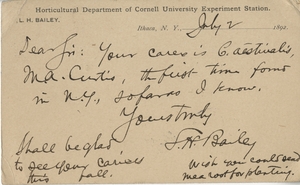 Horticultural Department of Cornell University Experiment Station.
L. H. BAILEY.
Ithaca, N. Y., July 2 189
Dear Sir: Your carex is C. aestivalis,
M. A. Curtis, the first time found
in N.Y., so far as I know.
Yours truly
L. H. Bailey
Shall be glad
to see your carices
this fall.
Wish you could send
me a root for planting.